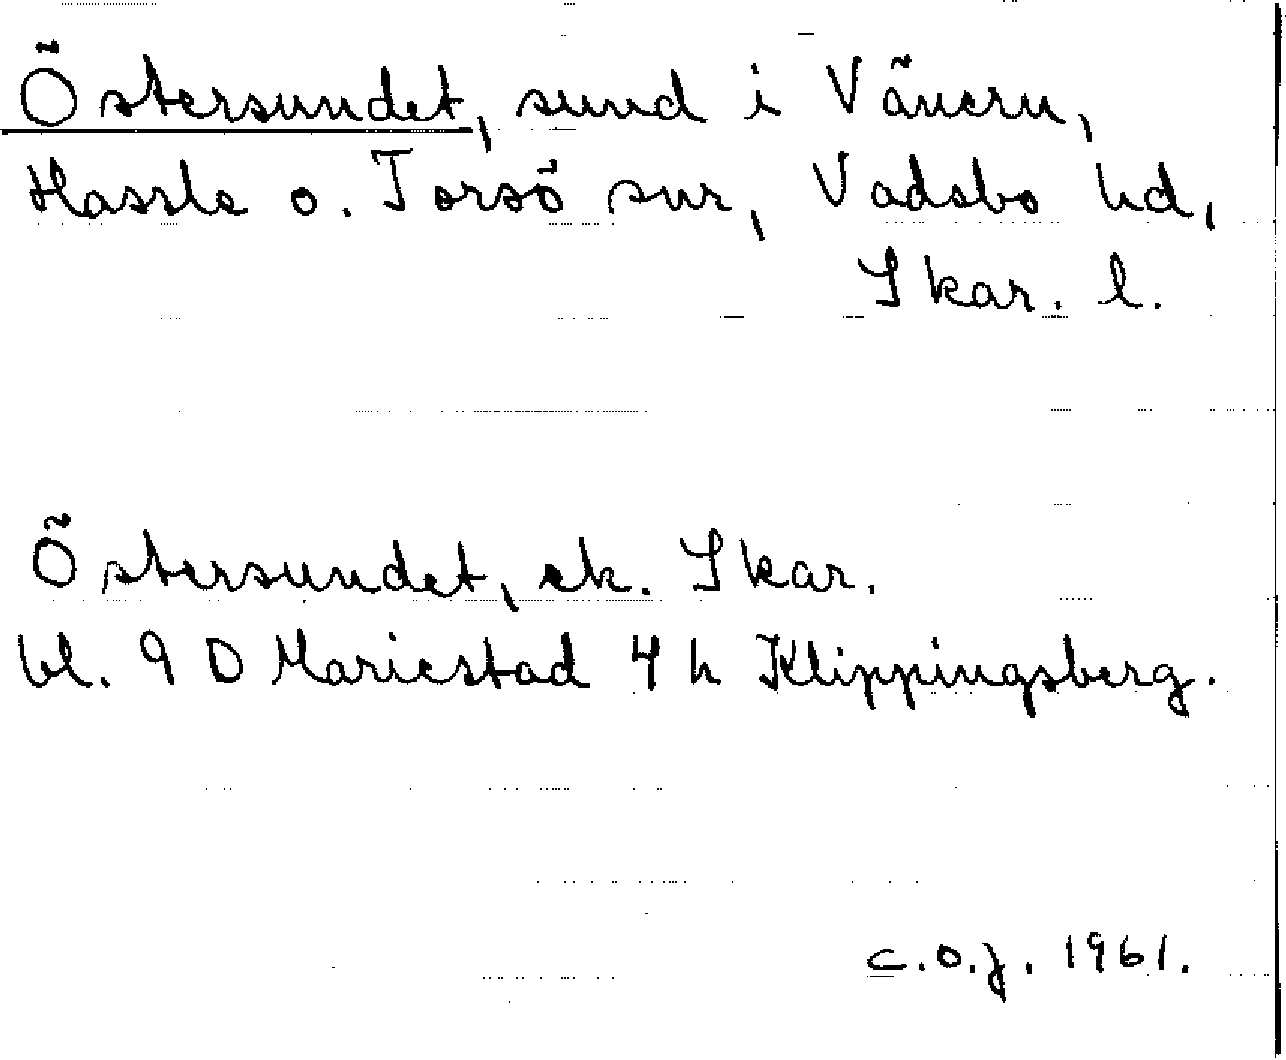 Östersundet, sund i Vänern,
Hassle o. Torsö snr, Vadsbo hd,
Skar. l.
Östersundet, ek. Skar.
bl. 9 D Mariestad 4 h Klippingsberg.
C.O.J. 1961.